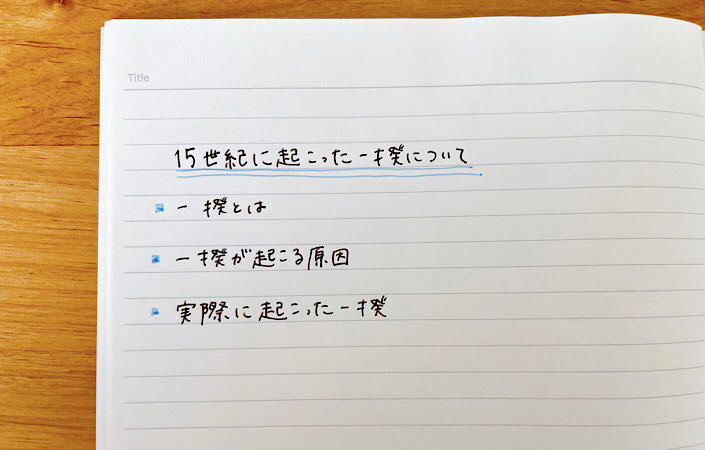 Title
15世紀に起こった一揆について
一揆とは
一揆が起こる原因
実際に起こった一揆